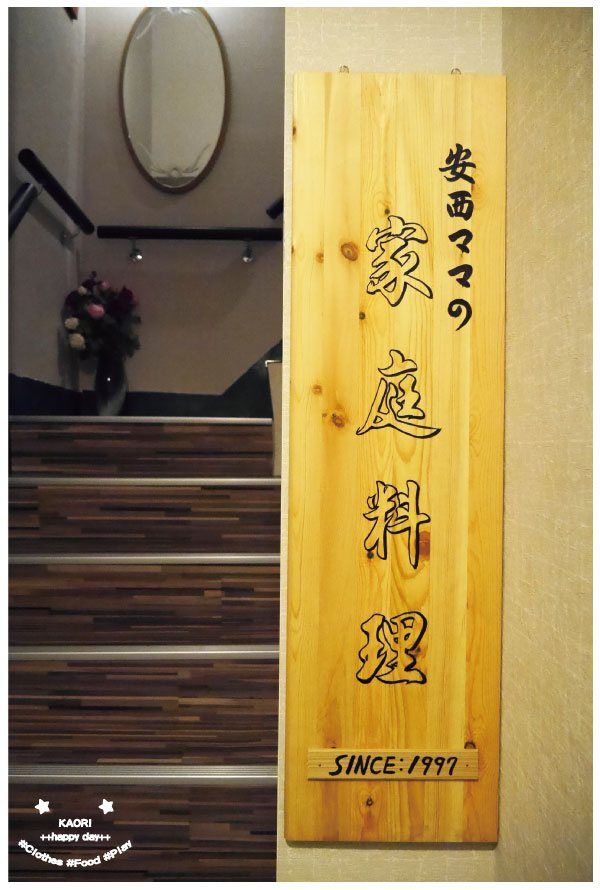 安西ママの
家庭料理
SINCE:1997
KAORI
++happy day++
#Clothes #Food #Play